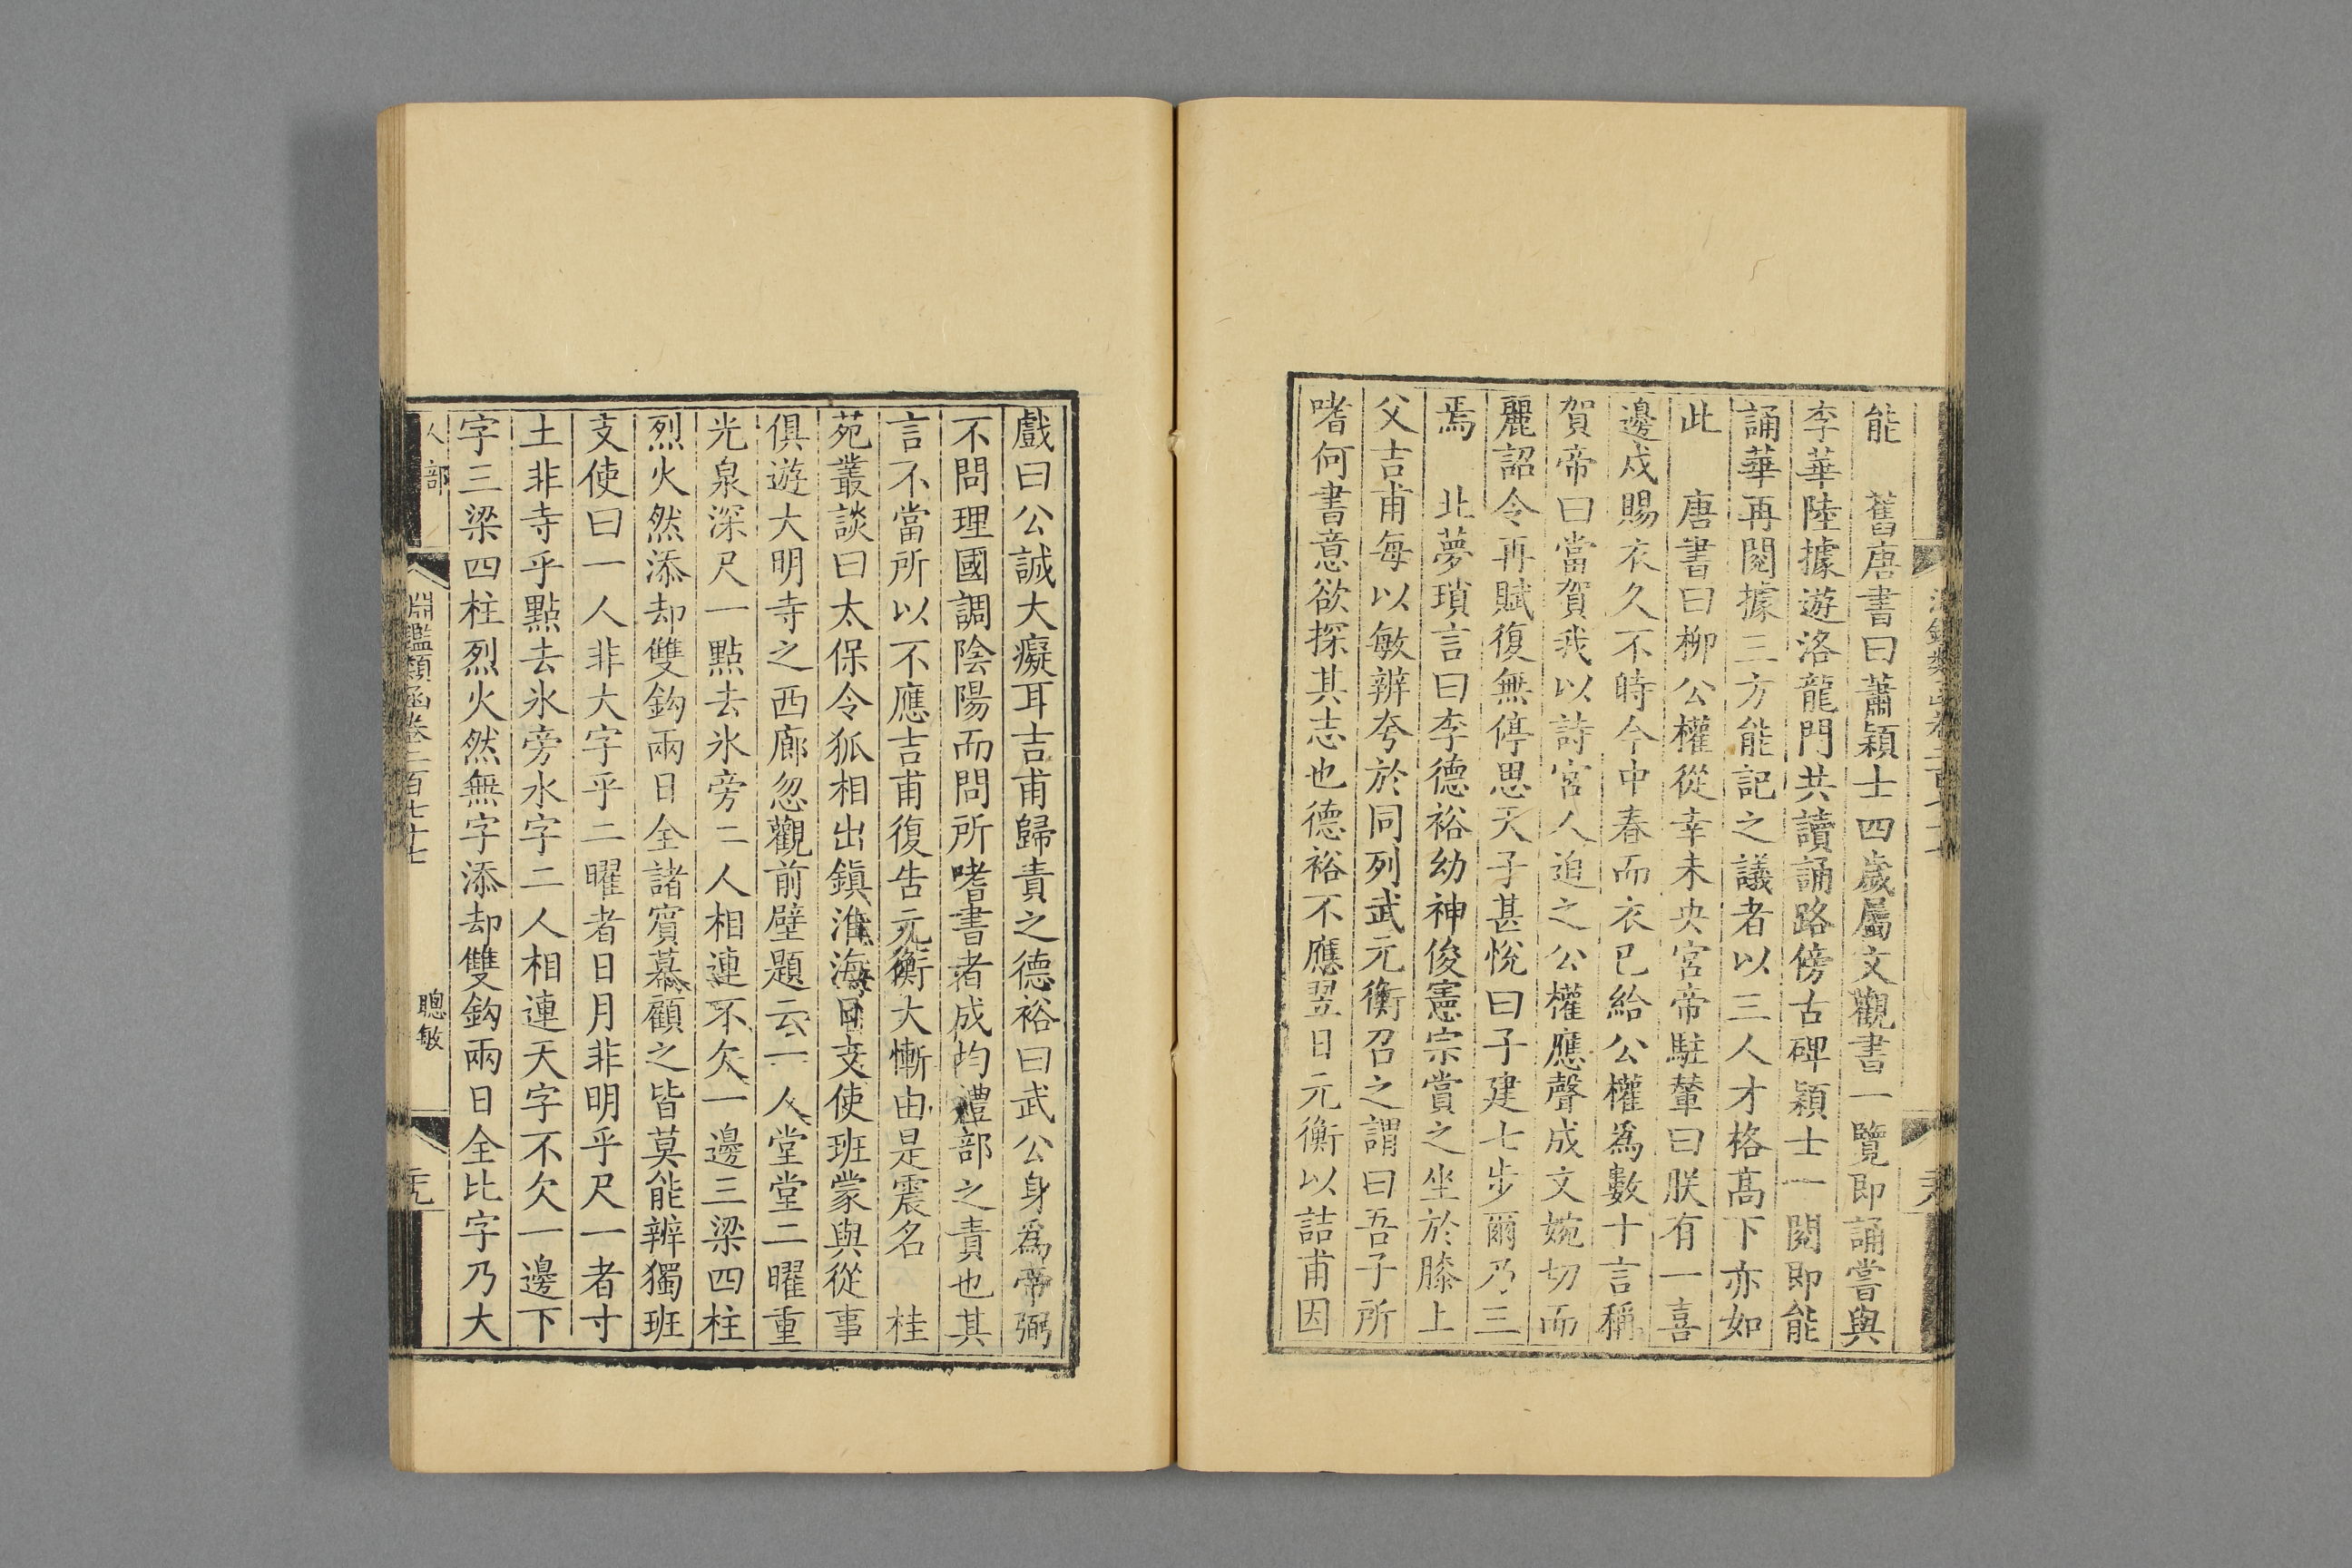 能　舊唐書曰蕭穎士四歲屬文觀書一覽即誦嘗與
李華陸據遊洛龍門共讀誦路傍古碑穎士一閱即能
誦華再閱據三方能記之議者以三人才格髙下亦如
此　唐書曰柳公權從幸未央宮帝駐輦曰朕有一喜
邊戍賜衣久不時今中春而衣已給公權爲數十言稱
賀帝曰當賀我以詩宮人迫之公權應聲成文婉切而
麗詔令再賦復無停思天子甚悅曰子建七步爾乃三
焉　北夢瑣言曰李德裕幼神俊憲宗賞之坐於膝上
父吉甫每以敏辨夸於同列武元衡召之謂曰吾子所
嗜何書意欲探其志也德裕不應翌日元衡以詰甫因
戲曰公誠大癡耳吉甫歸責之德裕曰武公身爲帝弼
不問理國調陰陽而問所嗜書者成均禮部之責也其
言不當所以不應吉甫復告元衡大慚由是震名　桂
苑叢談曰太保令狐相出鎭淮海日支使班蒙與從事
俱遊大明寺之西廊忽觀前壁題云一人堂堂二曜重
光泉深尺一點去氷旁二人相連不欠一邊三梁四柱
烈火然添却雙鈎兩日全諸賓幕顧之皆莫能辨獨班
支使曰一人非大字乎二曜者日月非明乎尺一者寸
土非寺乎點去氷旁水字二人相連天字不欠一邊下
字三梁四柱烈火然無字添却雙鈎兩日全比字乃大
人部
淵鑑類函卷二百七十七
聰敏